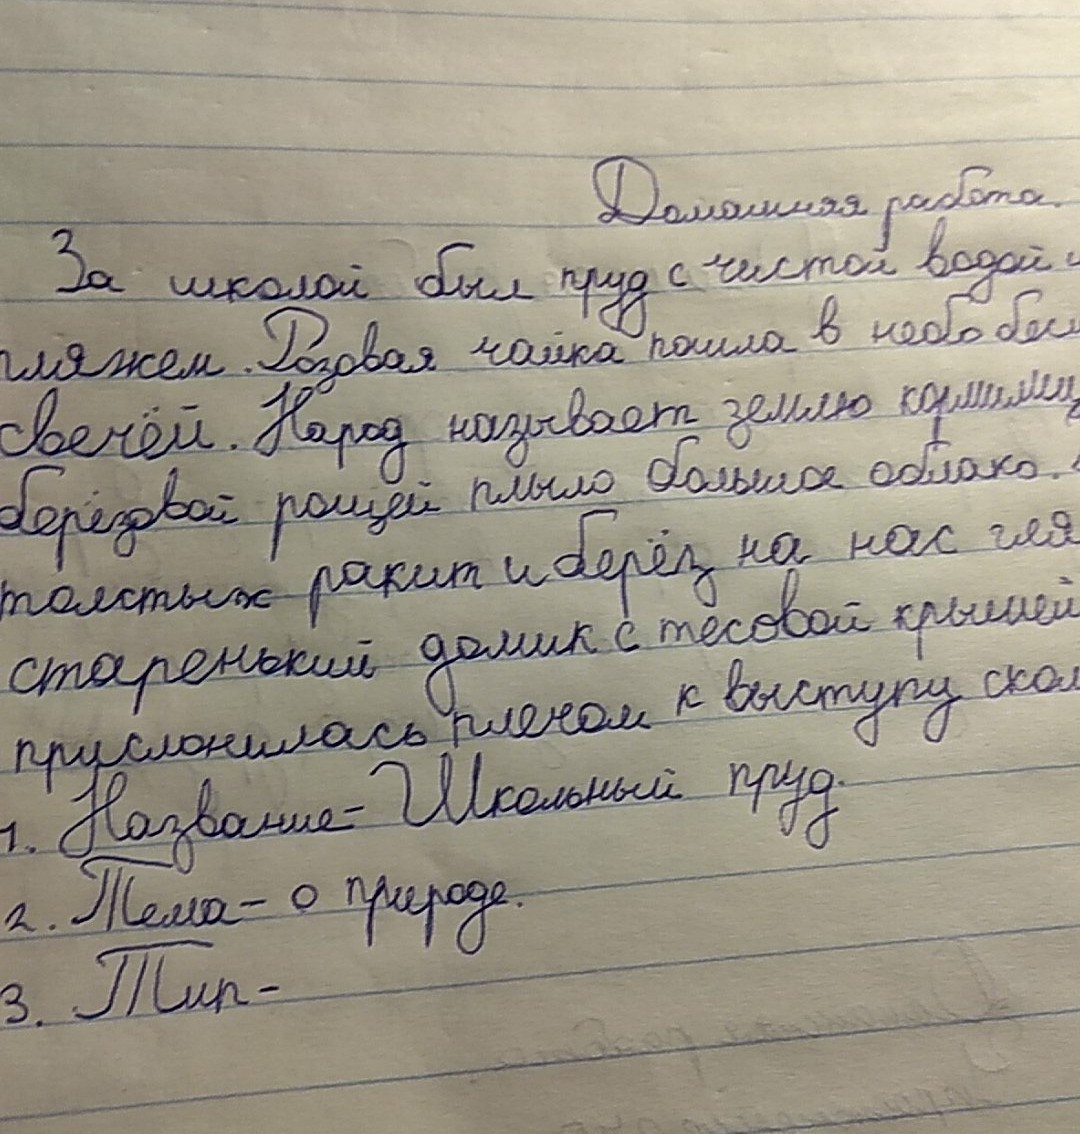 Домашняя работа.
За школой был пруд с чистой водой и
пляжем. Розовая чайка пошла в небо бес
свечёй. Народ называет землю кормилиц
берёзовой рощей плыло большое облако.
толстых ракит и берёз на нас гля
старенький домик с тесовой крышей
прислонилась плечом к выступу скал
1. Название - Школьный пруд.
2. Тема - о природе.
3. Тип -